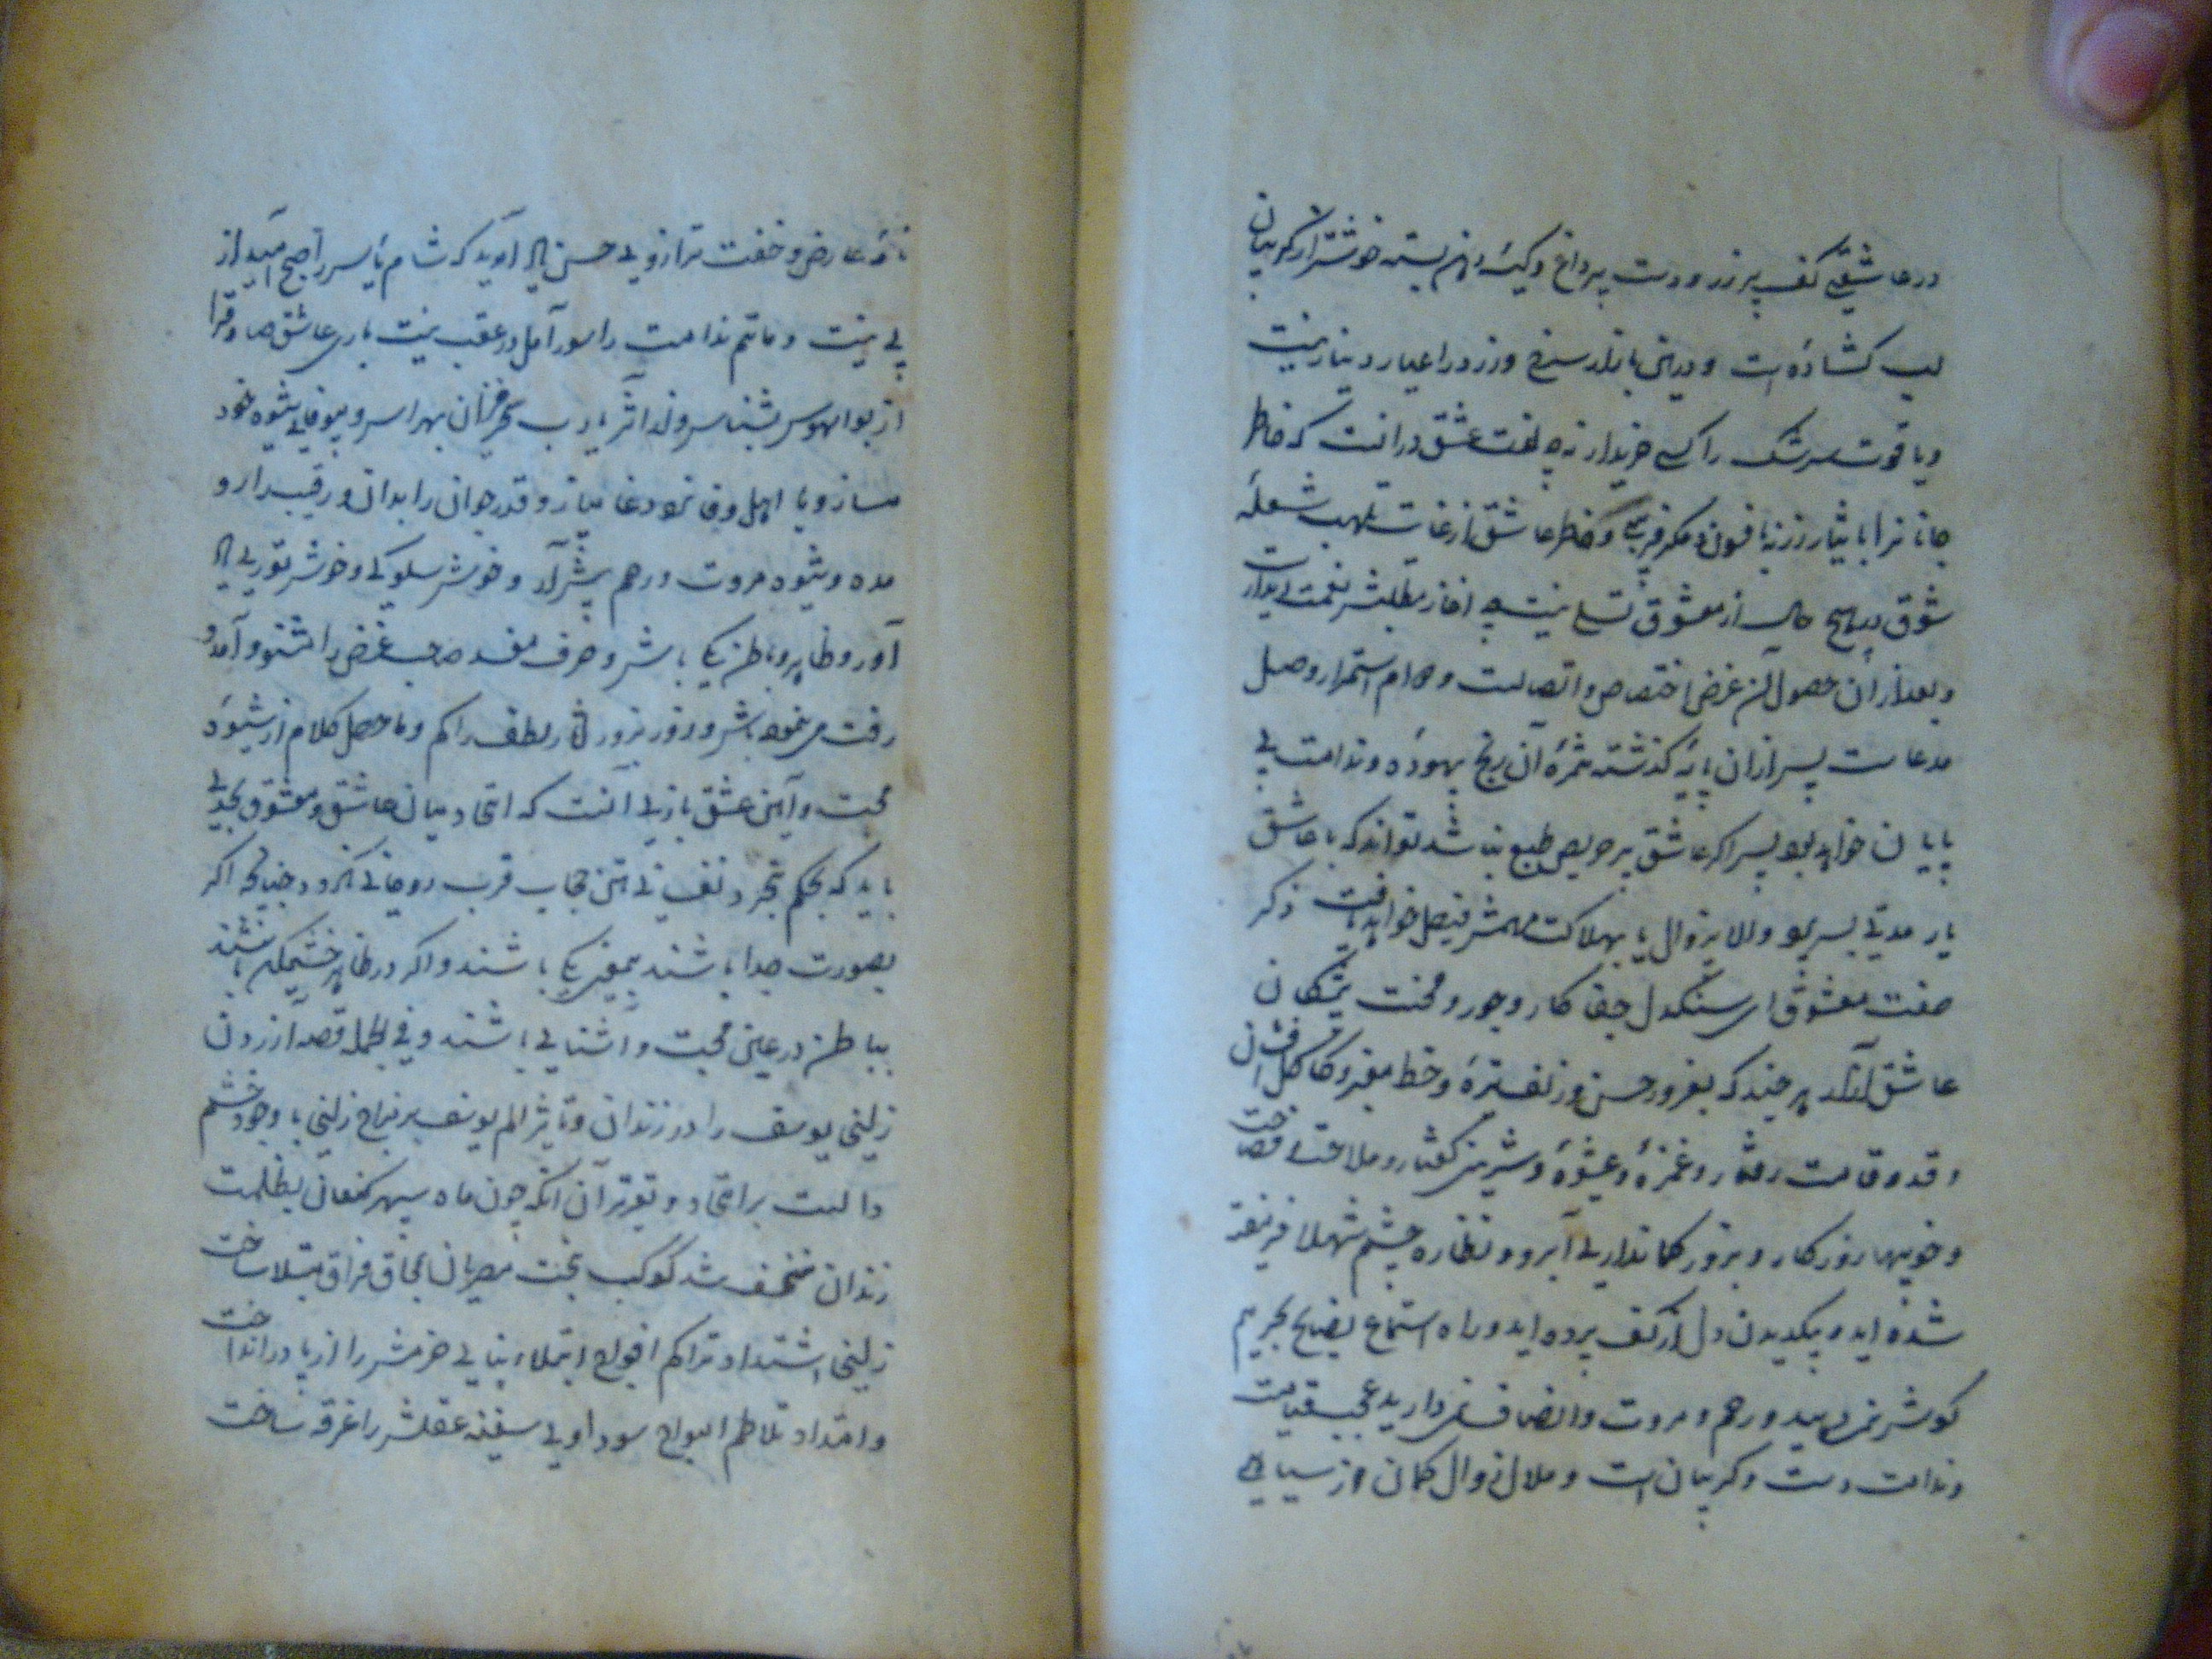 در عاشقی کف پر زر و دست پر داغ و کیسه درهم بسته خوشتر از گریبان
لب کشاده است و زر را عیار دینار نیست
و یاقوت سرشک را کسی خریدار نه چه لغت عشق در آنست که خاطر
جانانرا با نثار زر نه بافسون و مکر فریبی و خاطر عاشق از غایت تلهب شعلهٔ
شوق بهیچ حال از معشوق تسلی نیست چه آغاز مطلبش نعمت دیدار است
و بعد از آن حصول آن غرض اختصاص و اتصالست و مرام استمرار وصل
مدعاست پس از آن پایه گذشته ثمرهٔ آن رنج بیهوده و ندامت بی
پایان خواهد بود پس اگر عاشق پر حریص طبع نباشد تواند که با عاشق
یار مدتی بسر برد والا بزوال یا بهلاکت مهمش فیصل خواهد یافت ذکر
صفت معشوق ای سنگدل جفا کار و جور و محنت
عاشق آزار هر چند که بغرور حسن و زلف و طره و خط معنبر و کاکل افشان
و قد و قامت رفتار و غمزه و عشوه و شیرین گفتار و ملاحت فصاحت
و خوبیها روزکار و بزور کمانداری ابرو و نظاره چشم شهلا فریفته
شده اید و بیکدیدن دل از کف برده اید و راه استماع نصایح بحریم
کوش نمی دهید و رحم و مروت و انصاف نمی دارید عجب قیامت
و ندامت دست و کریبان است و ملال زوال کمان و از سیاهی
نامهٔ عارض و خفت ترازوی حسن یاد آرید که شام یأس را صبح امید از
پی نیست و ماتم ندامت را سور آمل در عقب نیست باری عاشق صادق را
از بوالهوس بشناس و بیوفایی شیوه خود
مساز و با اهل وفا نرد دغا مباز و قدر جوانی را بدان و رقیب را رو
مده و شیوه مروت و رحم پیش آر و خوش سلوکی و خوش خویی یاد
آور و ظاهر و باطن یکی باش و حرف مفسد صاحب غرض را مشنو و آمد و
رفت مرغوب باش و روز بروز لطف را کم و ماحصل کلام از شیوهٔ
محبت و آیین عشق بازی آنست که اتحاد میان عاشق و معشوق بحدی
باید که بحکم تجرد نفسانی تن حجاب قرب روحانی نکردد چنانچه اکر
بصورت جدا باشند بمعنی یکی باشند و اکر در ظاهر خشمکین باشند
بباطن در عین محبت و آشنایی باشند و فی الجمله قصد آزردن
زلیخا یوسف را در زندان و تأثیر الم یوسف بر مزاج زلیخا با وجود خشم
دالست بر اتحاد و تقریر آن آنکه چون ماه سپهر کنعان بظلمت
زندان منخسف شد کوکب بخت مصریان بمحاق فراق مبتلا ساخت
زلیخا اشتداد تراکم افواج ابتلاء بنای خرمنش را از پا در انداخت
و امتداد تلاطم امواج سودای سفینه عقلش را غرقه ساخت